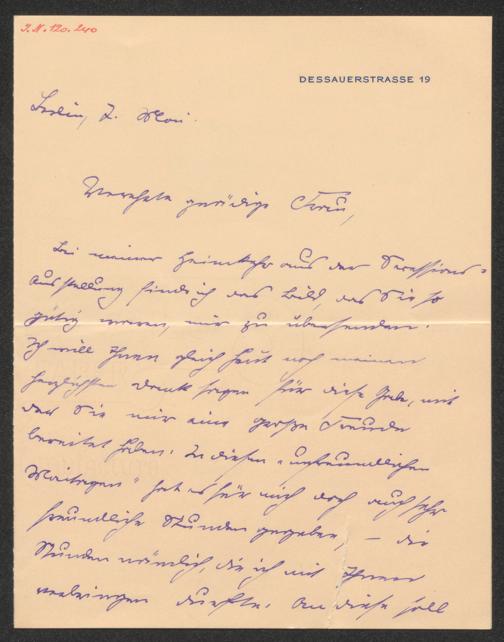 I.N. 120.240
DESSAUERSTRASSE 19
Berlin, 7. Mai.
Verehrte gnädige Frau,
bei meiner Heimkehr aus der Secessions-
Ausstellung find ich das Bild, das Sie so
gütig waren, mir zu übersenden.
Ich will Ihnen gleich heut noch meinen
herzlichsten Dank sagen für diese Gabe, mit
der Sie mir eine große Freude
bereitet haben. In diesen „unfreundlichen
Maitagen" hat es für mich doch auch sehr
freundliche Stunden gegeben, – die
Stunden nämlich, die ich mit Ihnen
verbringen durfte. An diese soll